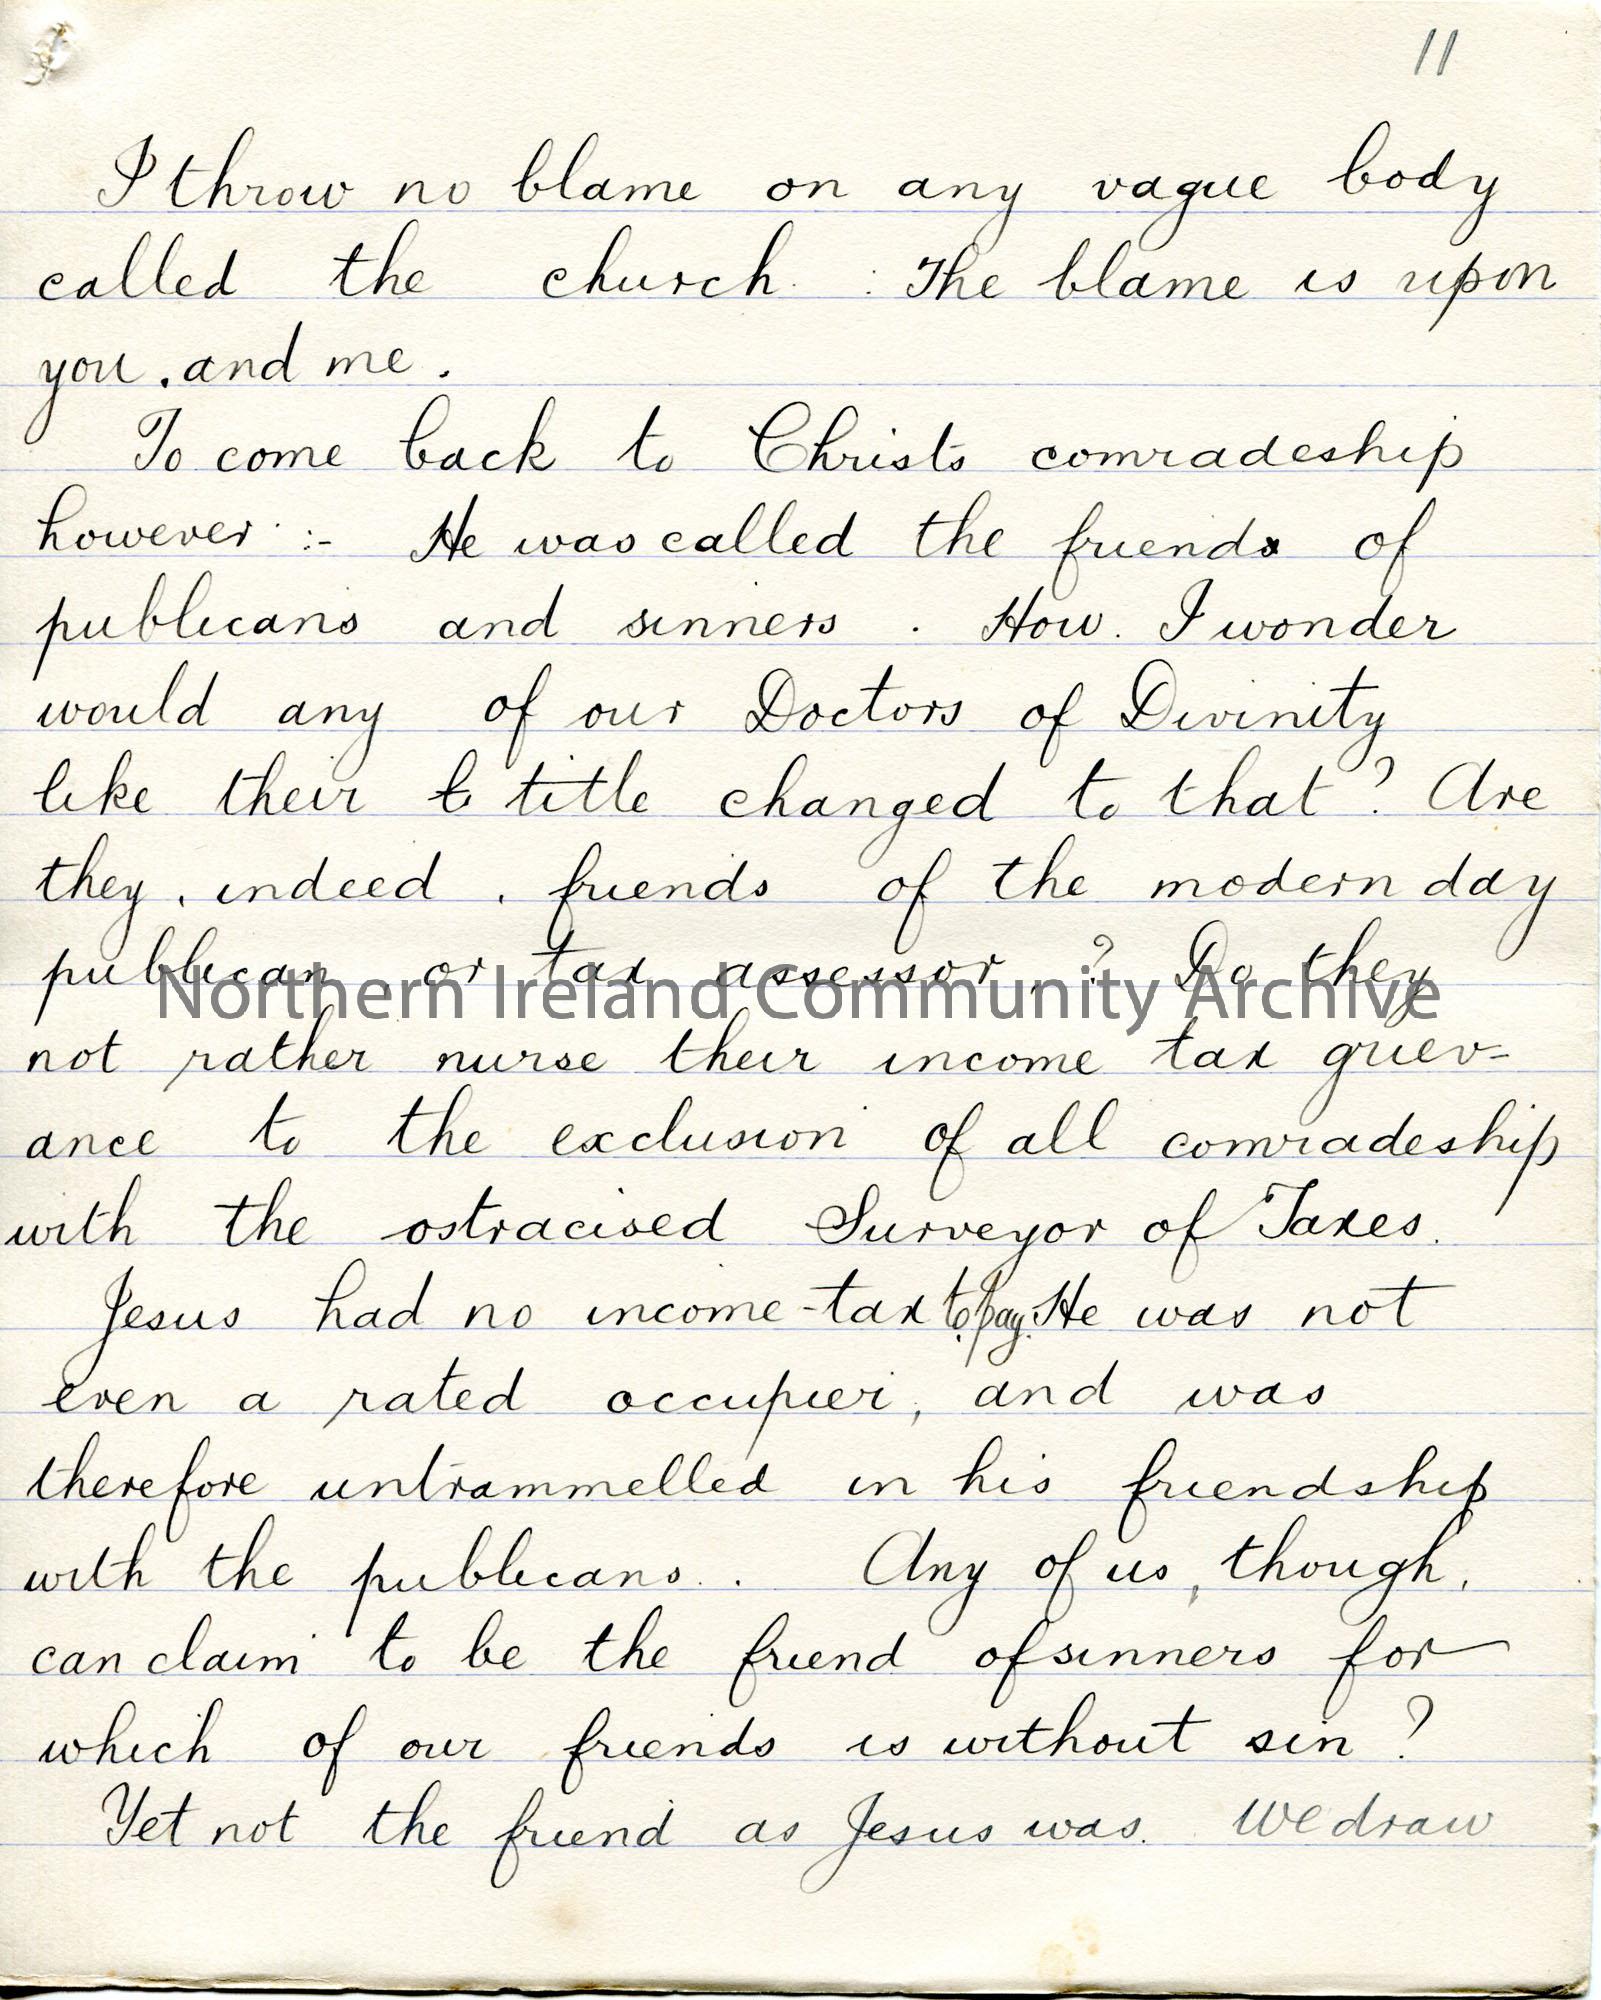 11
I throw no blame on any vague body
called the church : The blame is upon
you . and me .
To come back to Christs comradeship
however :- He was called the friends of
publicans and sinners . How . I wonder
would any of our Doctors of Divinity
like their t title changed to that ? Are
they , indeed , friends of the modern day
publican , or tax assessor , ? Do they
Northern Ireland Community Archive
not rather nurse their income tax griev-
ance to the exclusion of all comradeship
with the ostracised Surveyor of Taxes .
Jesus had no income-tax to pay. He was not
even a rated occupier , and was
therefore untrammelled in his friendship
with the publicans . . Any of us , though ,
can claim to be the friend of sinners for
which of our friends is without sin ?
Yet not the friend as Jesus was . We draw